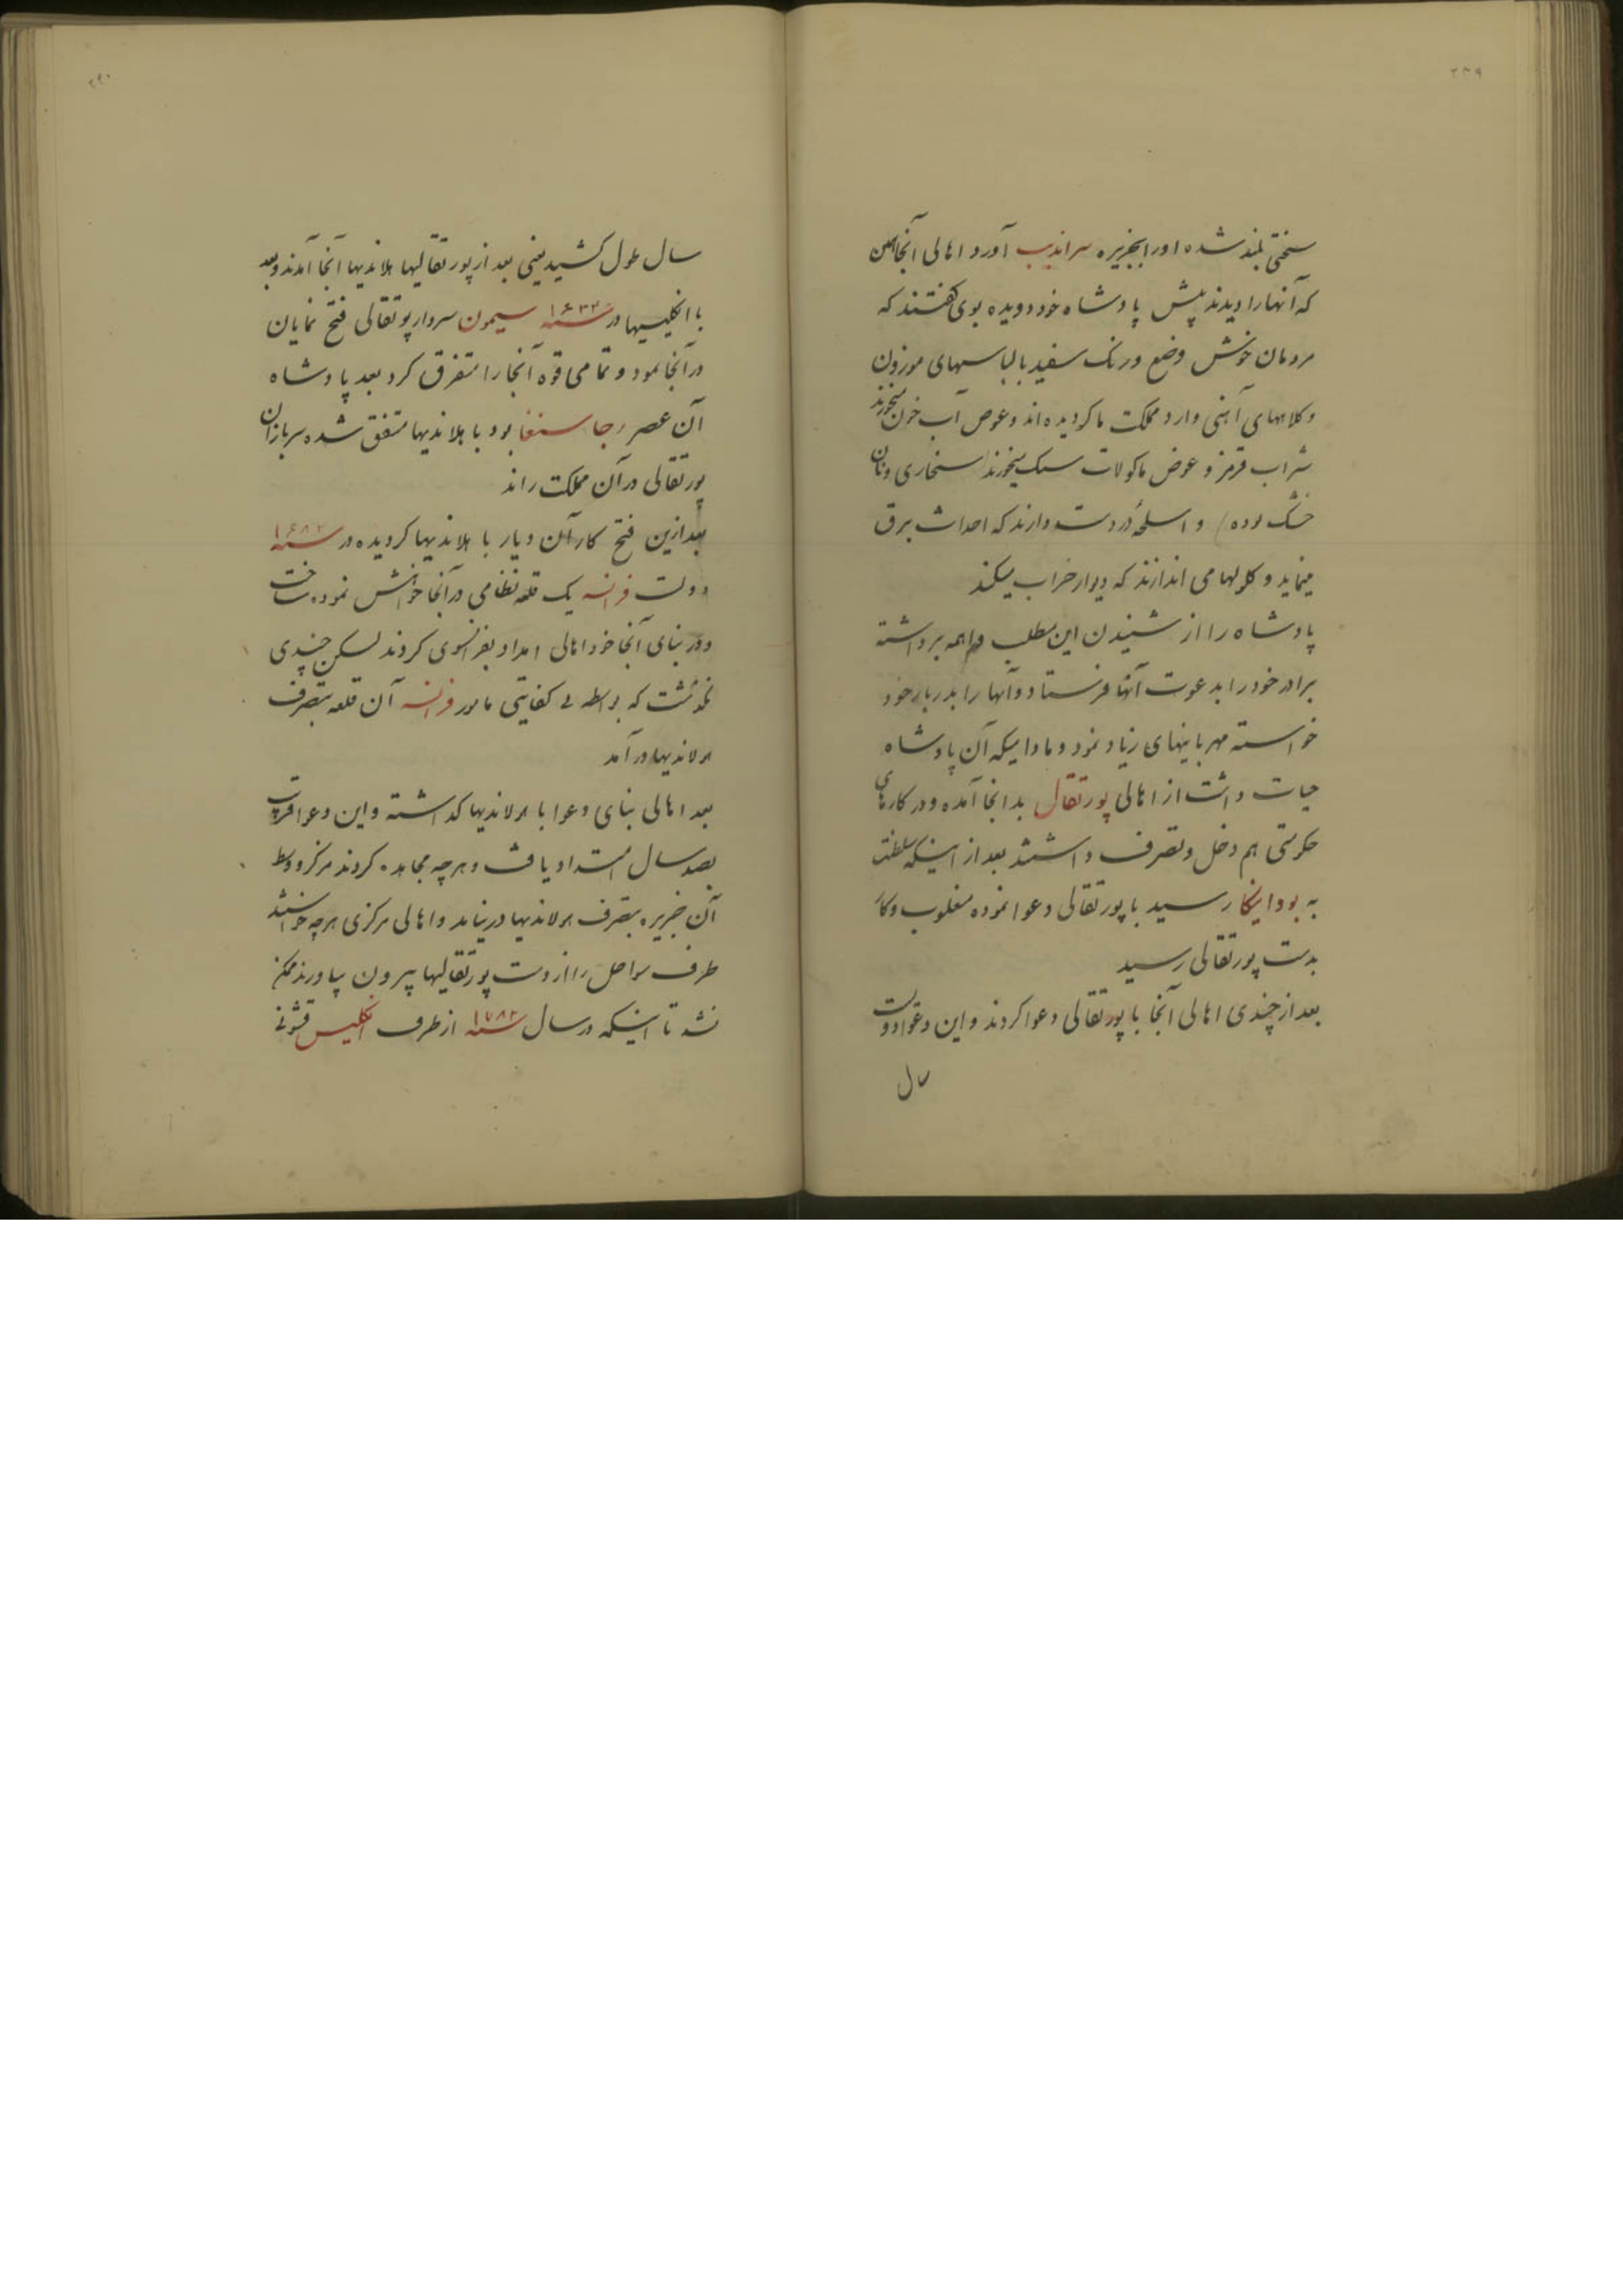 ۲۳۹
سختی بلند شده او را بجزیره سراندیب آورد اهالی آنجا همین
که آنها را دیدند پیش پادشاه خود دویده بوی گفتند که
مردمان خوش وضع و رنک سفید با لباسهای موزون
و کلاههای آهنی وارد مملکت ما کردیده اند و عوض آب خون میخورند
شراب قرمز و عوض ماکولات سنک میخورند سخاری و نان
خشک بوده) و اسلحهٔ در دست دارند که احداث برق
مینماید و کلولها می اندازند که دیوار خراب میکند
پادشاه را از شنیدن این مطلب واهمه برداشته
برادر خود را بدعوت آنها فرستاد و آنها را بدربار خود
خواسته مهربانیهای زیاد نمود و مادامیکه آن پادشاه
حیات داشت از اهالی پورتقال بدانجا آمده و در کارهای
حکومتی هم دخل و تصرف داشتند بعد از اینکه سلطنت
به بوداینکا رسید با پورتقالی دعوا نموده مغلوب و کار
بدست پورتقالی رسید
بعد از چندی اهالی آنجا با پورتقالی دعوا کردند و این دعوا دویست
سال
۲۴۰
سال طول کشید یعنی بعد از پورتقالیها هلاندیها آنجا آمدند و بعد
با انکلیسیها در سنه ۱۶۳۳ سیمون سردار پورتقالی فتح نمایان
در آنجا نمود و تمامی قوه آنجا را متفرق کرد بعد پادشاه
آن عصر رجا سنغا بود با هلاندیها متفق شده سربازان
پورتقالی در آن مملکت راند
بعد ازین فتح کار آن دیار با هلاندیها کردیده در سنه ۱۶۸۲
دولت فرانسه یک قلعه نظامی در آنجا خواهش نموده ساخت
و در بنای آنجا خود اهالی امداد بفرانسوی کردند لیکن چندی
نکذشت که بواسطه بی کفایتی مامور فرانسه آن قلعه بتصرف
هولاندیها در آمد
بعد اهالی بنای دعوا با هولاندیها کذاشته و این دعوا قریب
بصد سال امتداد یافت و هر چه مجاهده کردند مرکز و وسط
آن جزیره بتصرف هولاندیها در نیامد و اهالی مرکزی هر چه خواستند
طرف سواحل را از دست پورتقالیها بیرون بیاورند ممکن
نشد تا اینکه در سال سنه ۱۷۸۲ از طرف انکلیس قشونی